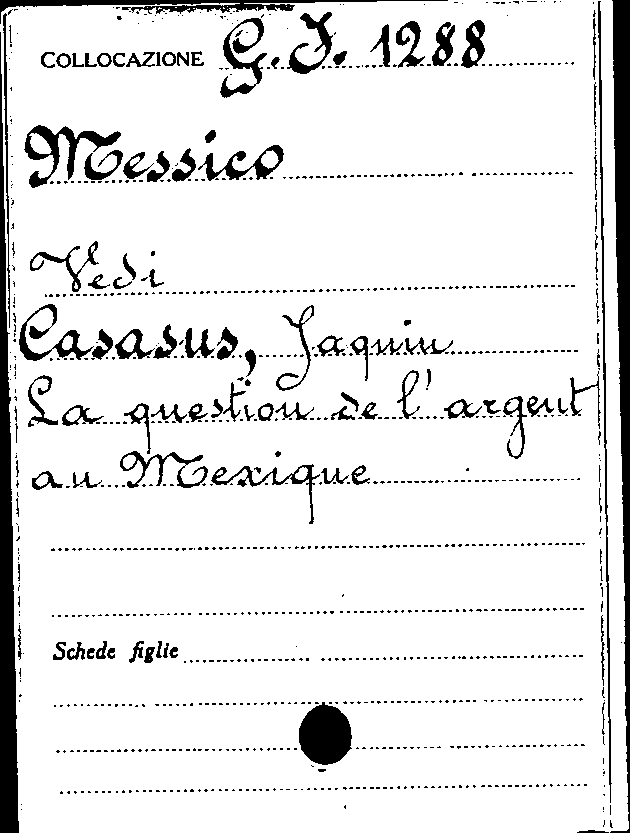 COLLOCAZIONE G.J. 1288
Messico
Vedi
Casasus, Jaquin
La question de l'argent
au Mexique
Schede figlie